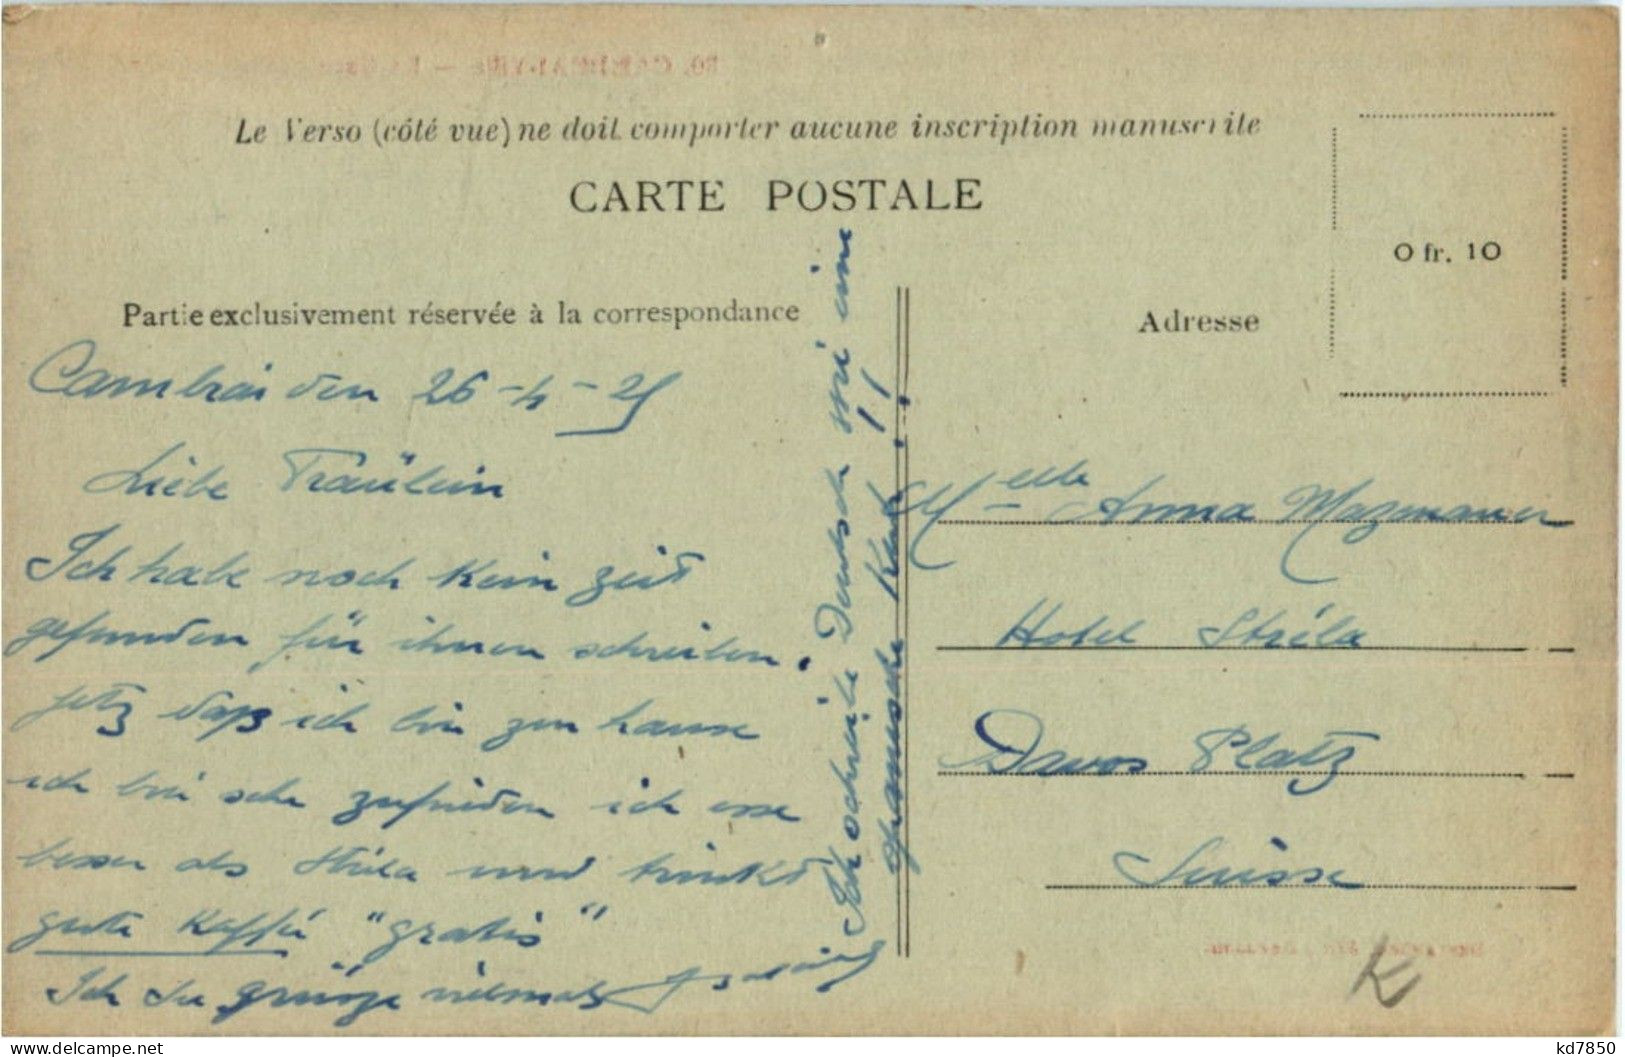 Le Verso (côté vue) ne doit comporter aucune inscription manuscrite
CARTE POSTALE
0 fr. 10
Partie exclusivement réservée à la correspondance
Adresse
Cambrai den 26-4-25
Liebe Fräulein
Ich habe noch kein zeit
gefunden für ihnen schreiben.
jetz dass ich bin zun hause
ich bin sehr zufrieden ich esse
besser als Stréla und trinkt
gute Kaffée "gratis"
Ich Sie grüsze vielmals
Ich schreibe Deutsch wie eine
spanische Kuh !!
Melle Anna Mazenauer
Hotel Stréla
Davos Platz
Suisse
K
kd7850